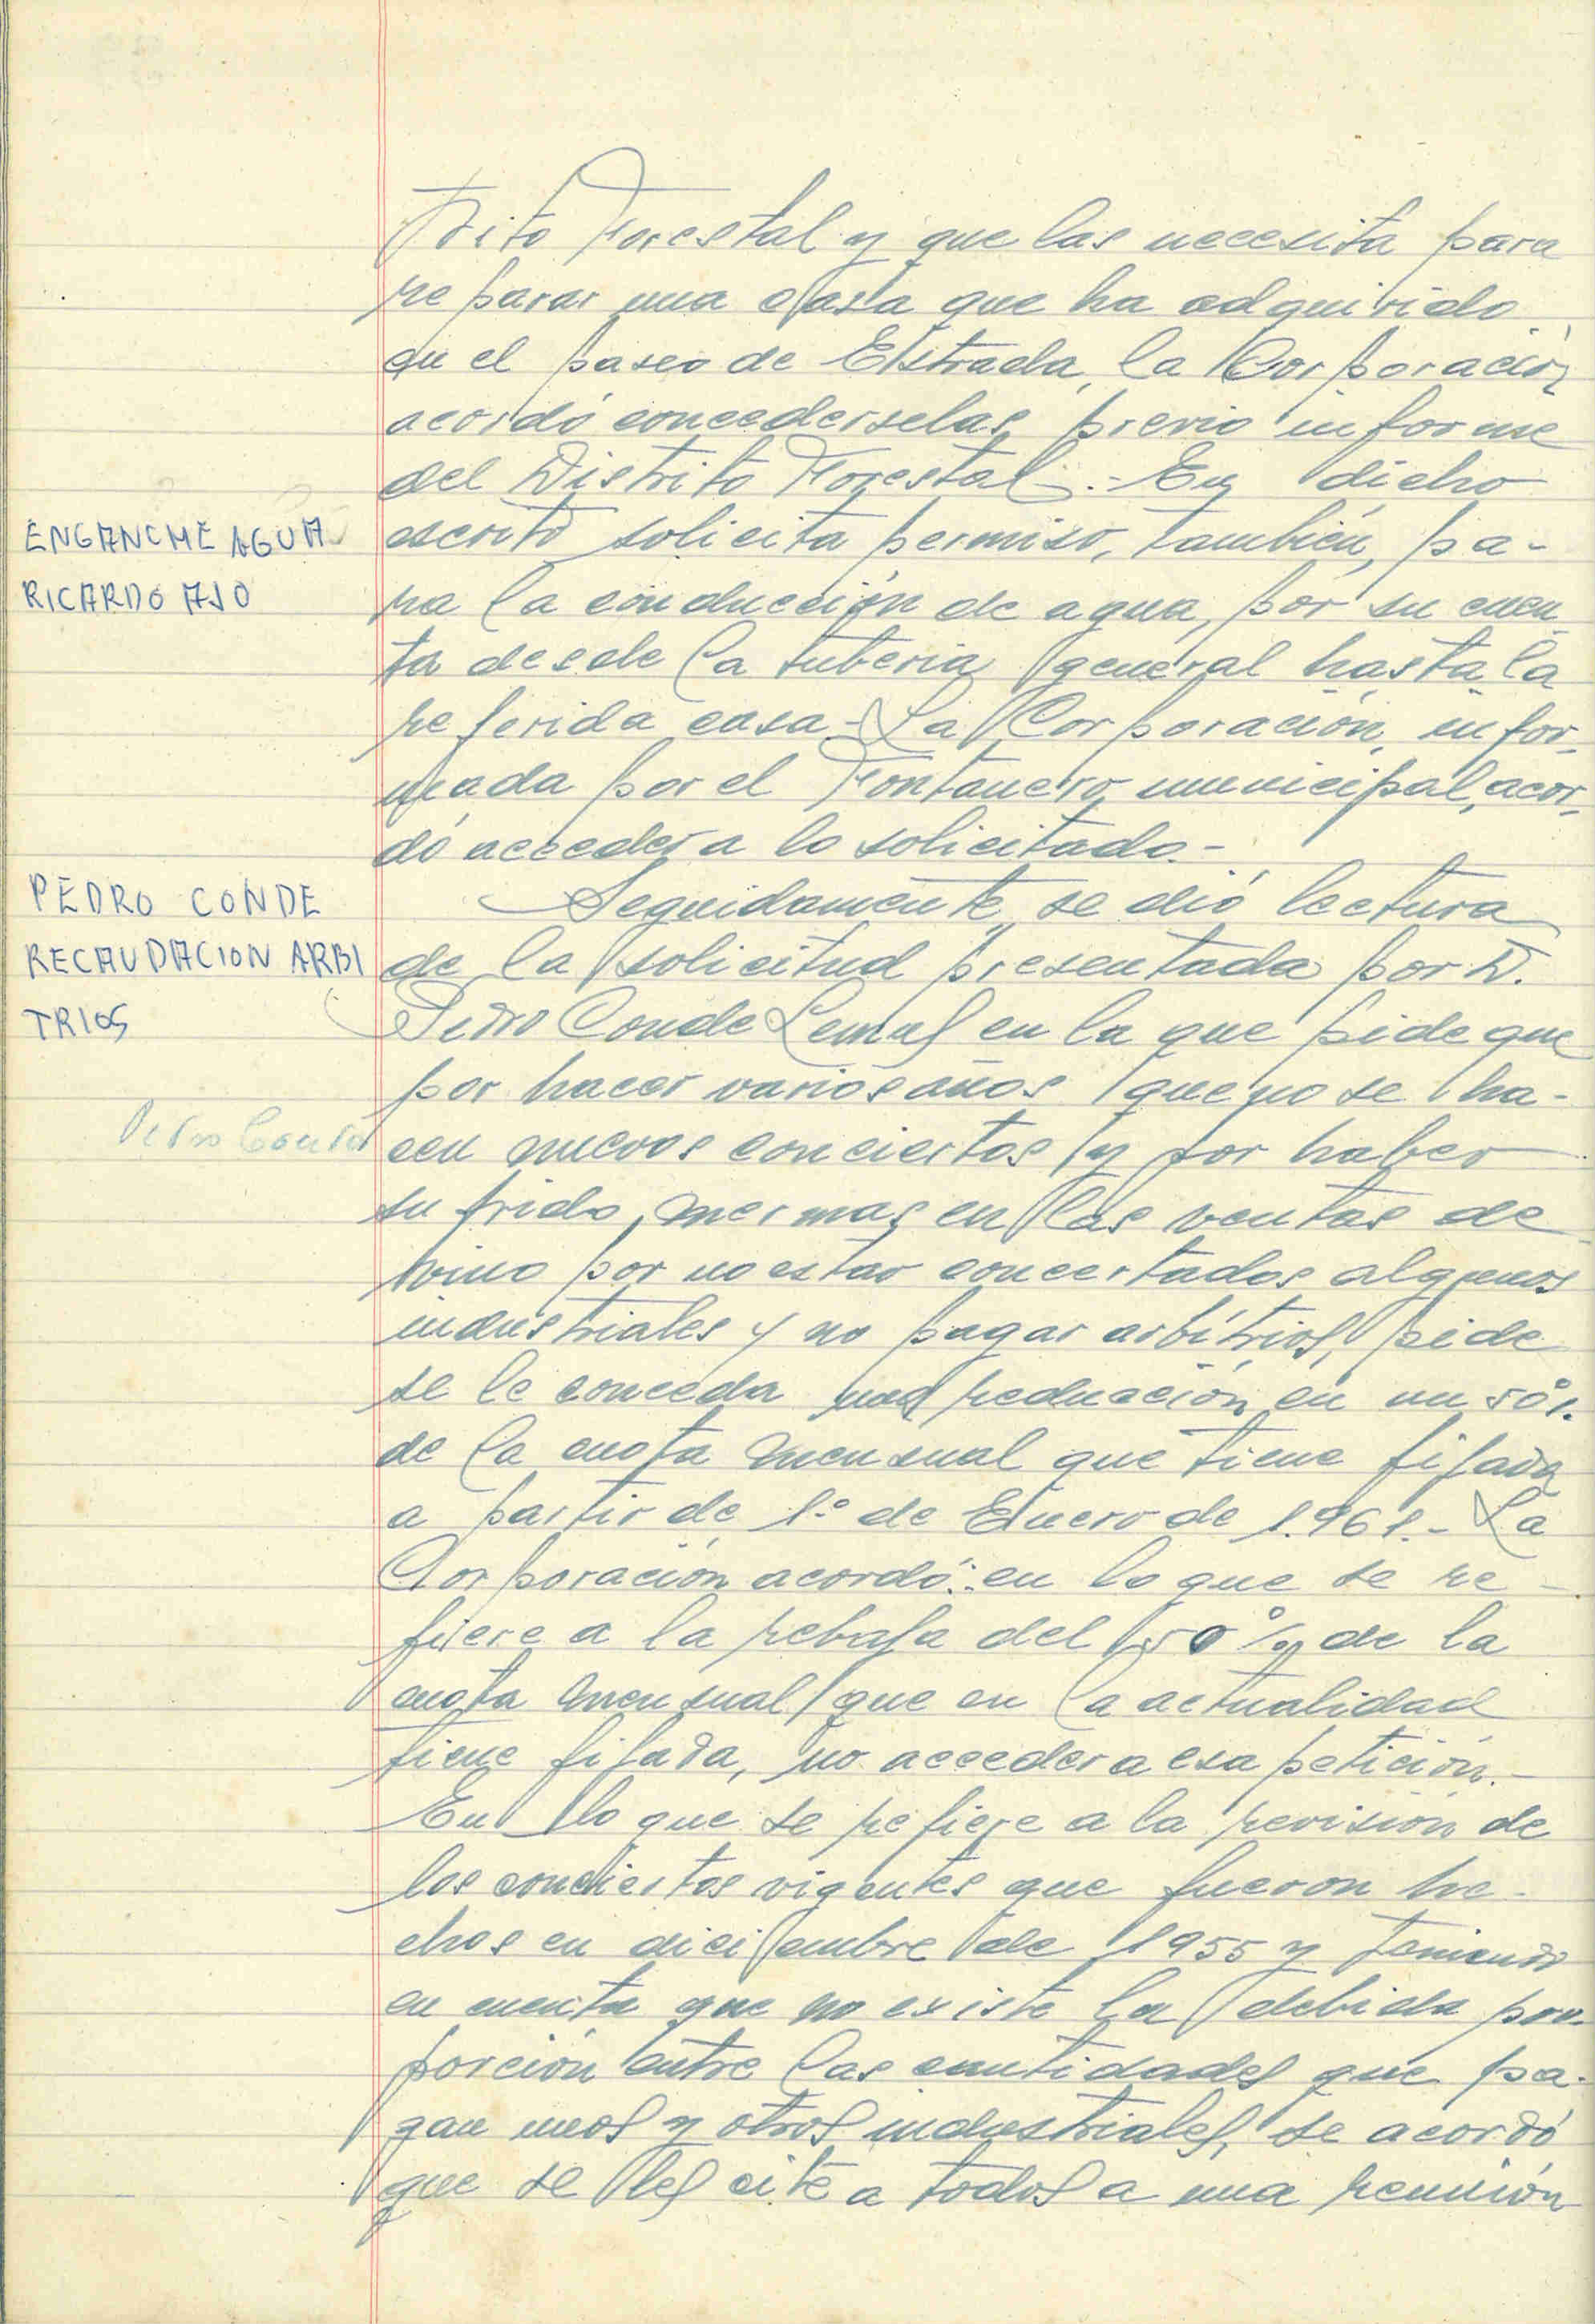 trito Forestal y que las necesita para
reparar una casa que ha adquirido
en el paseo de Estrada, la Corporación
acordó concederselas, previo informe
del Distrito Forestal.- En dicho
ENGANCHE AGUA
RICARDO AJO
escrito solicita permiso, también, pa-
ra la conducción de agua, por su cuen_
ta desde la tuberia general hasta la
referida casa.- La Corporación, infor_
mada por el Fontanero municipal, acor_
dó acceder a lo solicitado.-
PEDRO CONDE
RECAUDACION ARBI
TRIOS
Seguidamente, se dió lectura
de la solicitud presentada por D.
Pedro Conde Lemus en la que pide que
por hacer varios años que no se ha-
Pedro Conde
cen nuevos conciertos y por haber
sufrido mermas en las ventas de
vino por no estar concertados algunos
industriales y no pagar arbitrios, pide
se le conceda una reducción en un 50%.
de la cuota mensual que tiene fijada
a partir de 1º de Enero de 1.961.- La
Corporación acordó: en lo que se re-
fiere a la rebaja del 50% de la
cuota mensual que en la actualidad
tiene fijada, no acceder a esa petición.-
En lo que se refiere a la revisión de
los conciertos vigentes que fueron he-
chos en diciembre de 1955 y teniendo
en cuenta que no existe la debida pro-
porción entre las cantidades que pa-
gan unos y otros industriales, se acordó
que se les cite a todos a una reunión